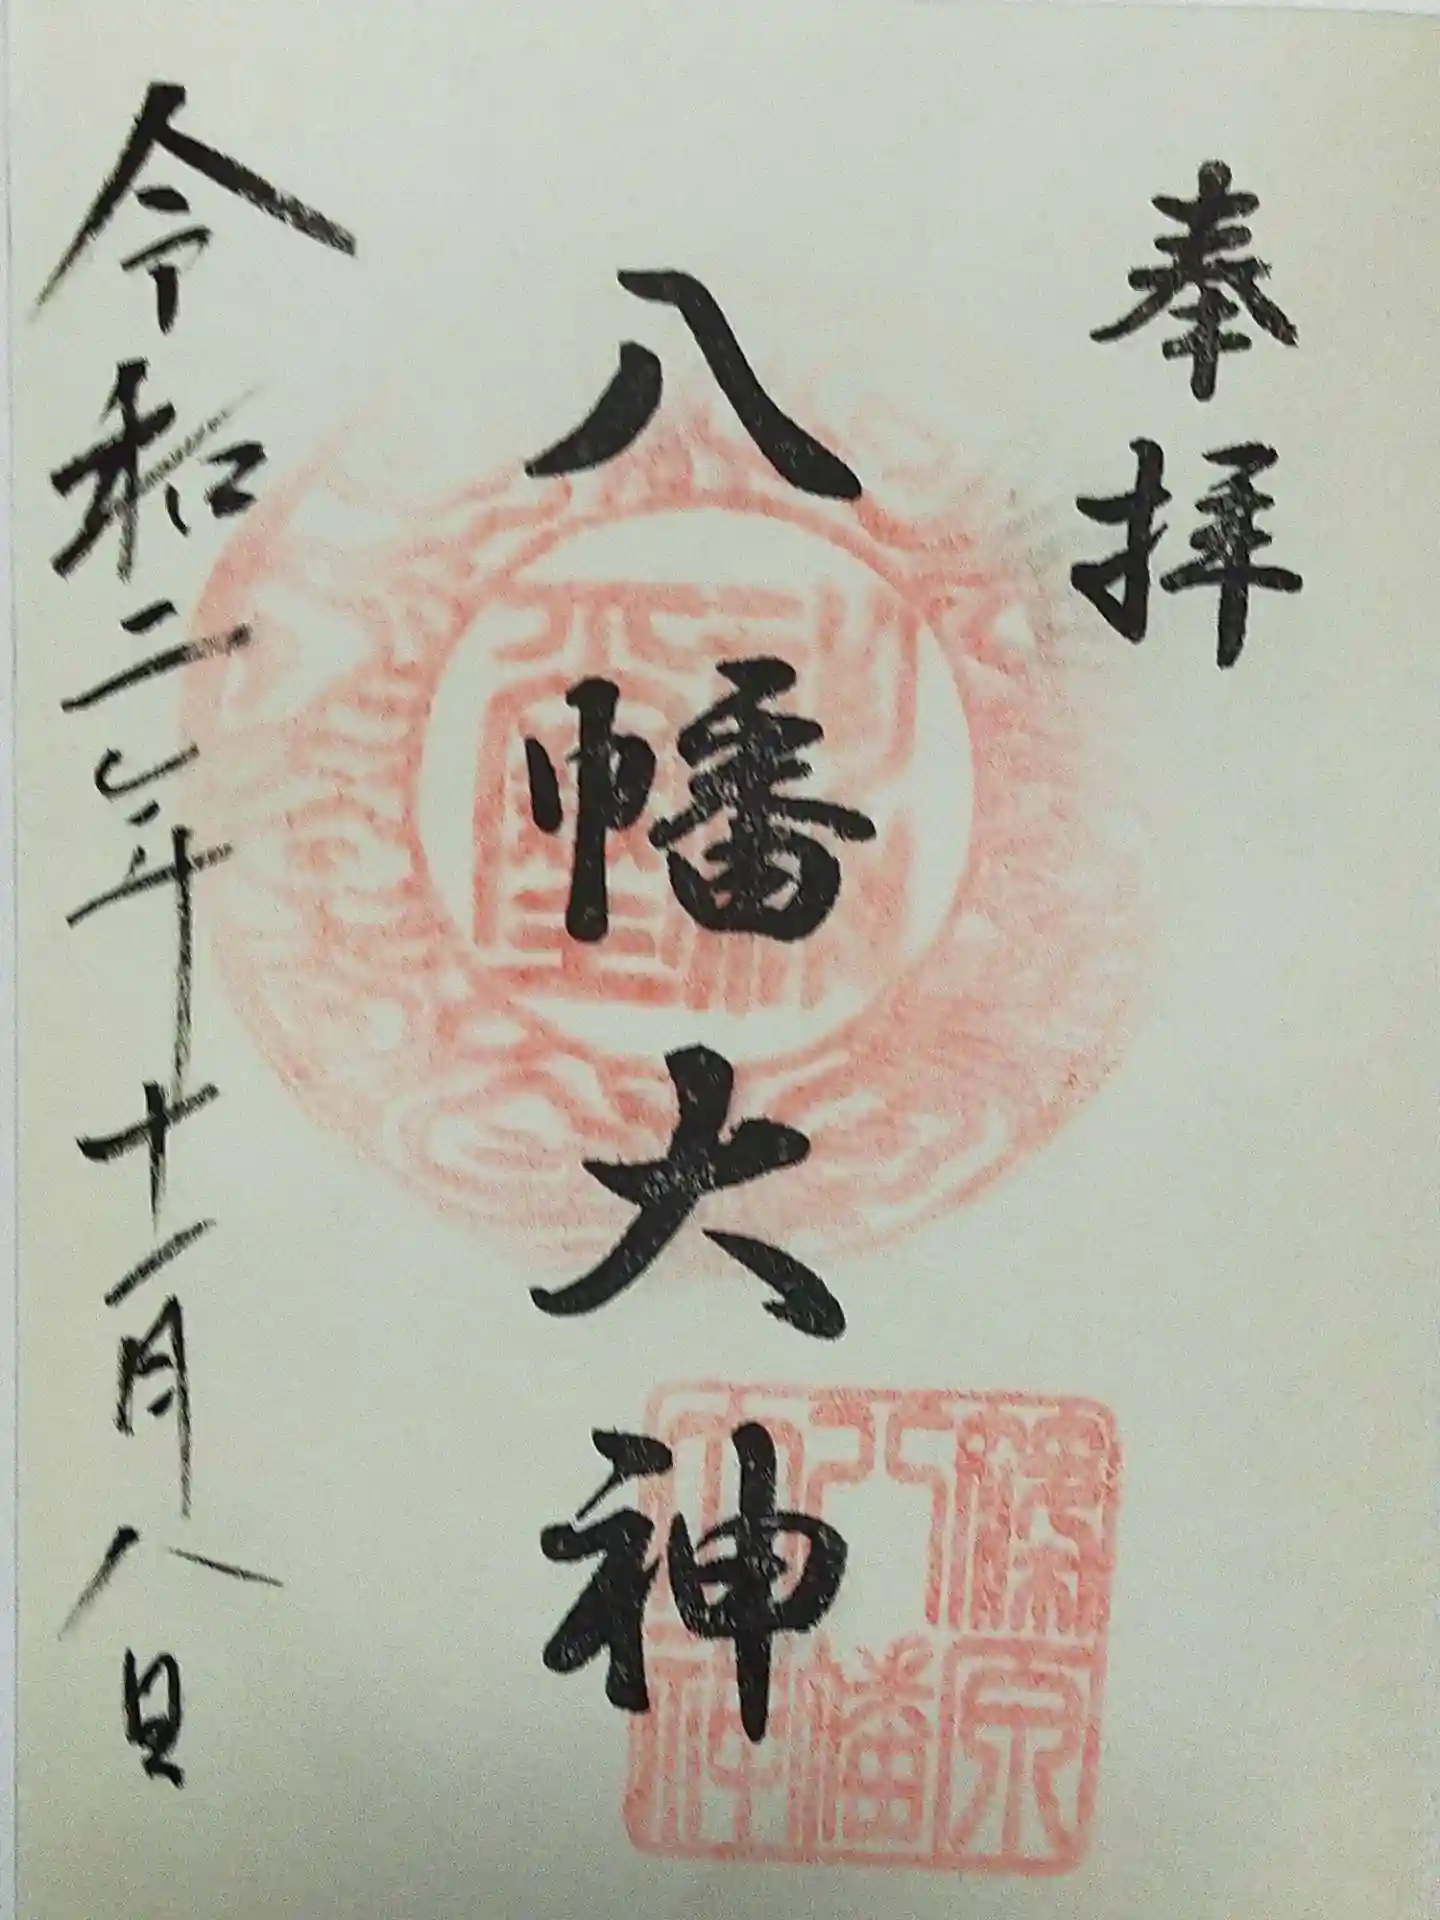 奉拝
八幡大神
令和二年十一月八日